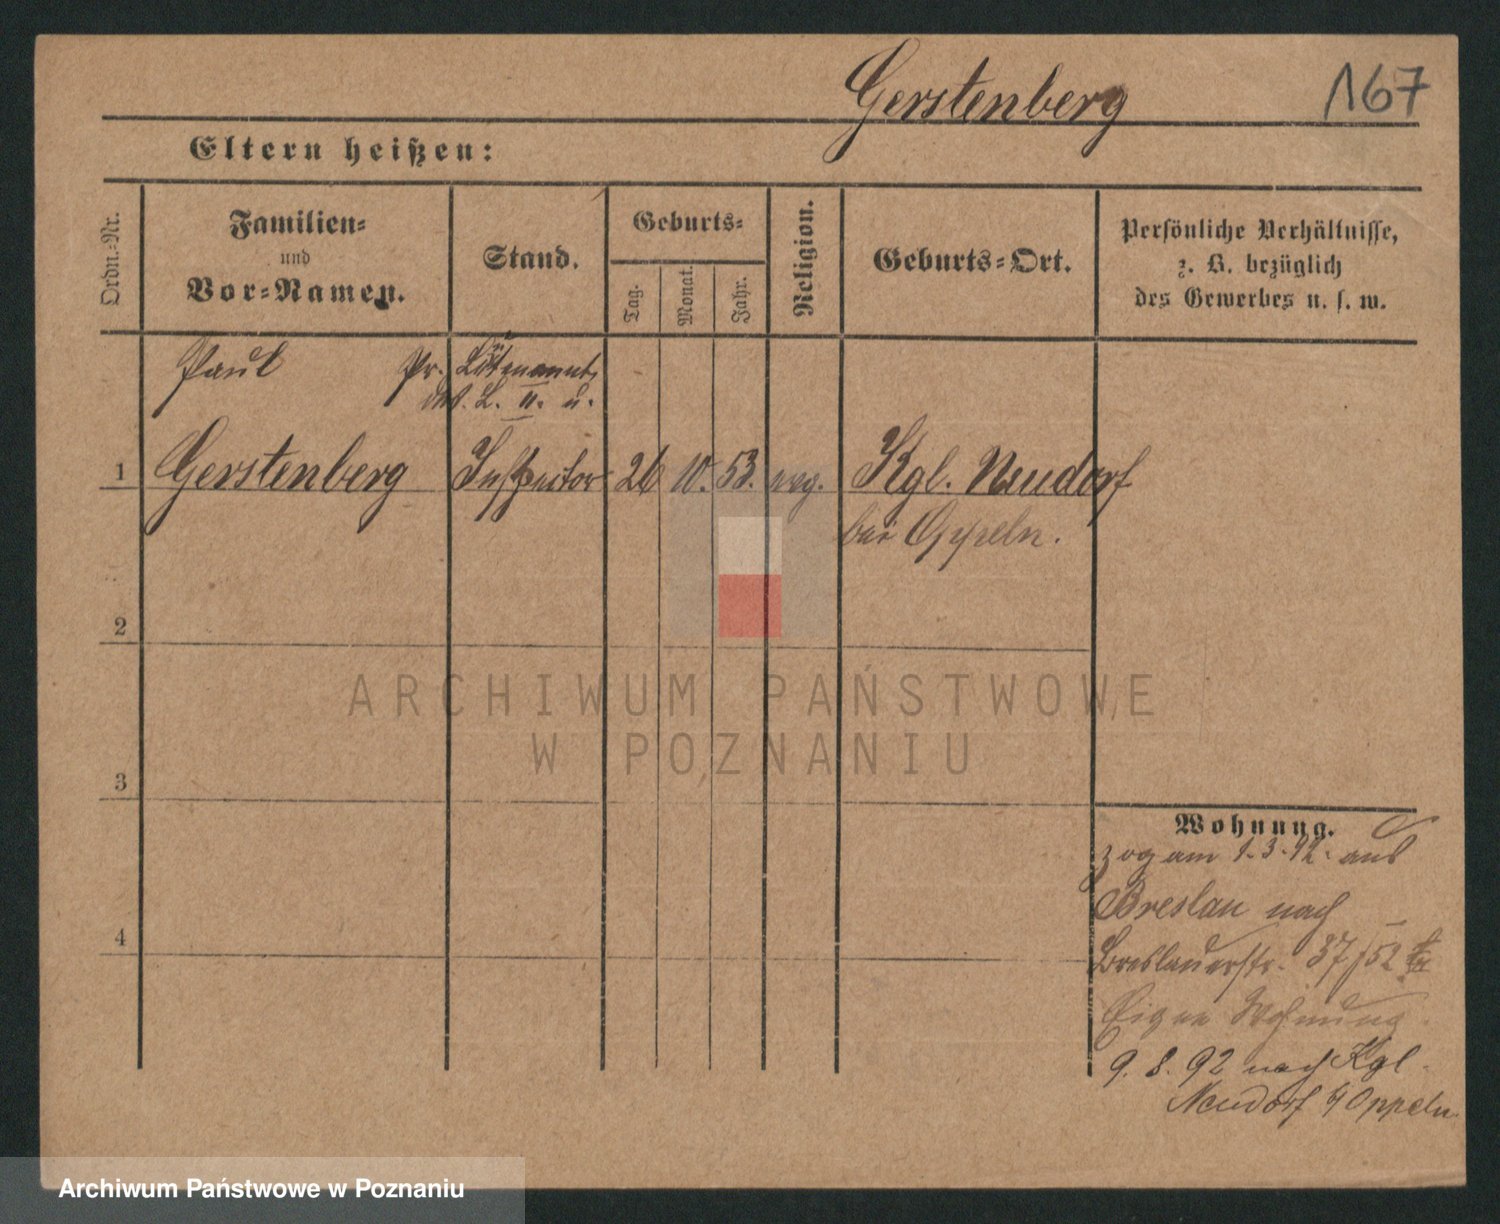 Gerstenberg 167
Eltern heißen:
Ordn.-Nr.
Familien-
und
Vor-Namen.
Stand.
Geburts-
Tag.
Monat.
Jahr.
Religion.
Geburts-Ort.
Persönliche Verhältnisse,
z. B. bezüglich
des Gewerbes u. s. w.
Paul Pr. Lieutenant
d. L. II. u.
1 Gerstenberg Inspector 26 10. 53. evg. Kgl. Neudorf
bei Oppeln.
2
3
4
Wohnung.
zog am 1.3.92. aus
Breslau nach
Breslauerstr. 37/52
Eigne Wohnung.
9. 8. 92 nach Kgl.
Neudorf Oppeln.
ARCHIWUM PAŃSTWOWE
W POZNANIU
Archiwum Państwowe w Poznaniu